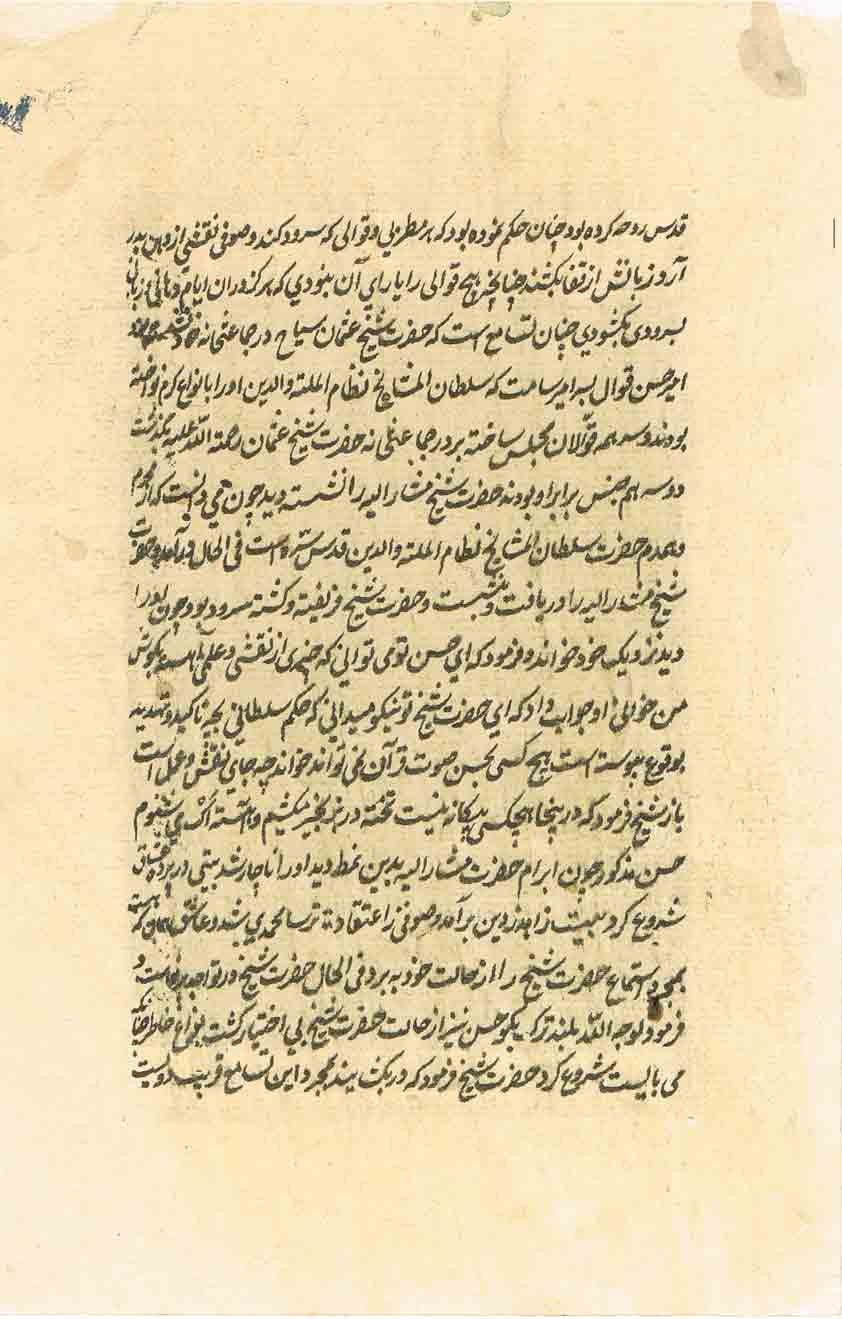 قدس روحه کرده بود چنان حکم نموده بود که هر مطربی و قوالی که سرود کند و صوفی نقشی از دهن بدر
آرد زبانش از قفا بکشند چنانچه هیچ قوالی را یارای آن نبودی که هرگز در آن ایام دهانی و زبانی
بسرودی بکشودی چنان تسامع است که حضرت شیخ عثمان سیاح در جماعتخانه خود نشسته بودند
امیر حسن قوال پسر امیر سامت که سلطان المشایخ نظام الملته والدین او را بانواع کرم نواخته
بودند و سر همه قوّالان مجلس ساخته بر در جماعتخانه حضرت شیخ عثمان رحمته اللّه علیه بگذشت
دو سه هم جنس برابر او بودند حضرت شیخ مشار الیه را نشسته دید چون می دانست که از محرم
و همدم حضرت سلطان المشایخ نظام الملته والدین قدس سره است فی الحال در آمد و حضرت
شیخ مشار الیه را دریافت و بنشست و حضرت شیخ فریفته و کشته سرود بود چون او را
دید نزدیک خود خواند و فرمود که ای حسن تو می توانی که چیزی از نقشی و عملی باهسته بگوش
من خوانی او جواب داد که ای حضرت شیخ تو نیکو میدانی که حکم سلطانی بچه تاکید و تهدید
بوقوع پیوسته است هیچ کسی بحسن صوت قرآن نمی تواند خواند چه جای نقش و عمل است
باز شیخ فرمود که در ینجا هیچکسی بیکانه نیست تخته در زنجیر میکشیم و اهسته اک‌ری شنوم
حسن مذکور چون ابرام حضرت مشار الیه بدین نمط دید او را ناچار شد بیتی در پرده عشاق
شروع کرد بیت زاهد ز دین برآمد و صوفی ز اعتقاد ترسا محمدی شد و عاشق همان که هست
بمجرد استماع حضرت شیخ را از حالت خود به برد فی الحال حضرت شیخ در تواجد برخاست و
فرمود لوجه اللّه بلند ترک بکو حسن نیز از حالت حضرت شیخ بی اختیار کشت بفراغ خاطر چنانکه
می بایست شروع کرد حضرت شیخ فرمود که در بکشایند بمجرد این تسامع قریب دویست